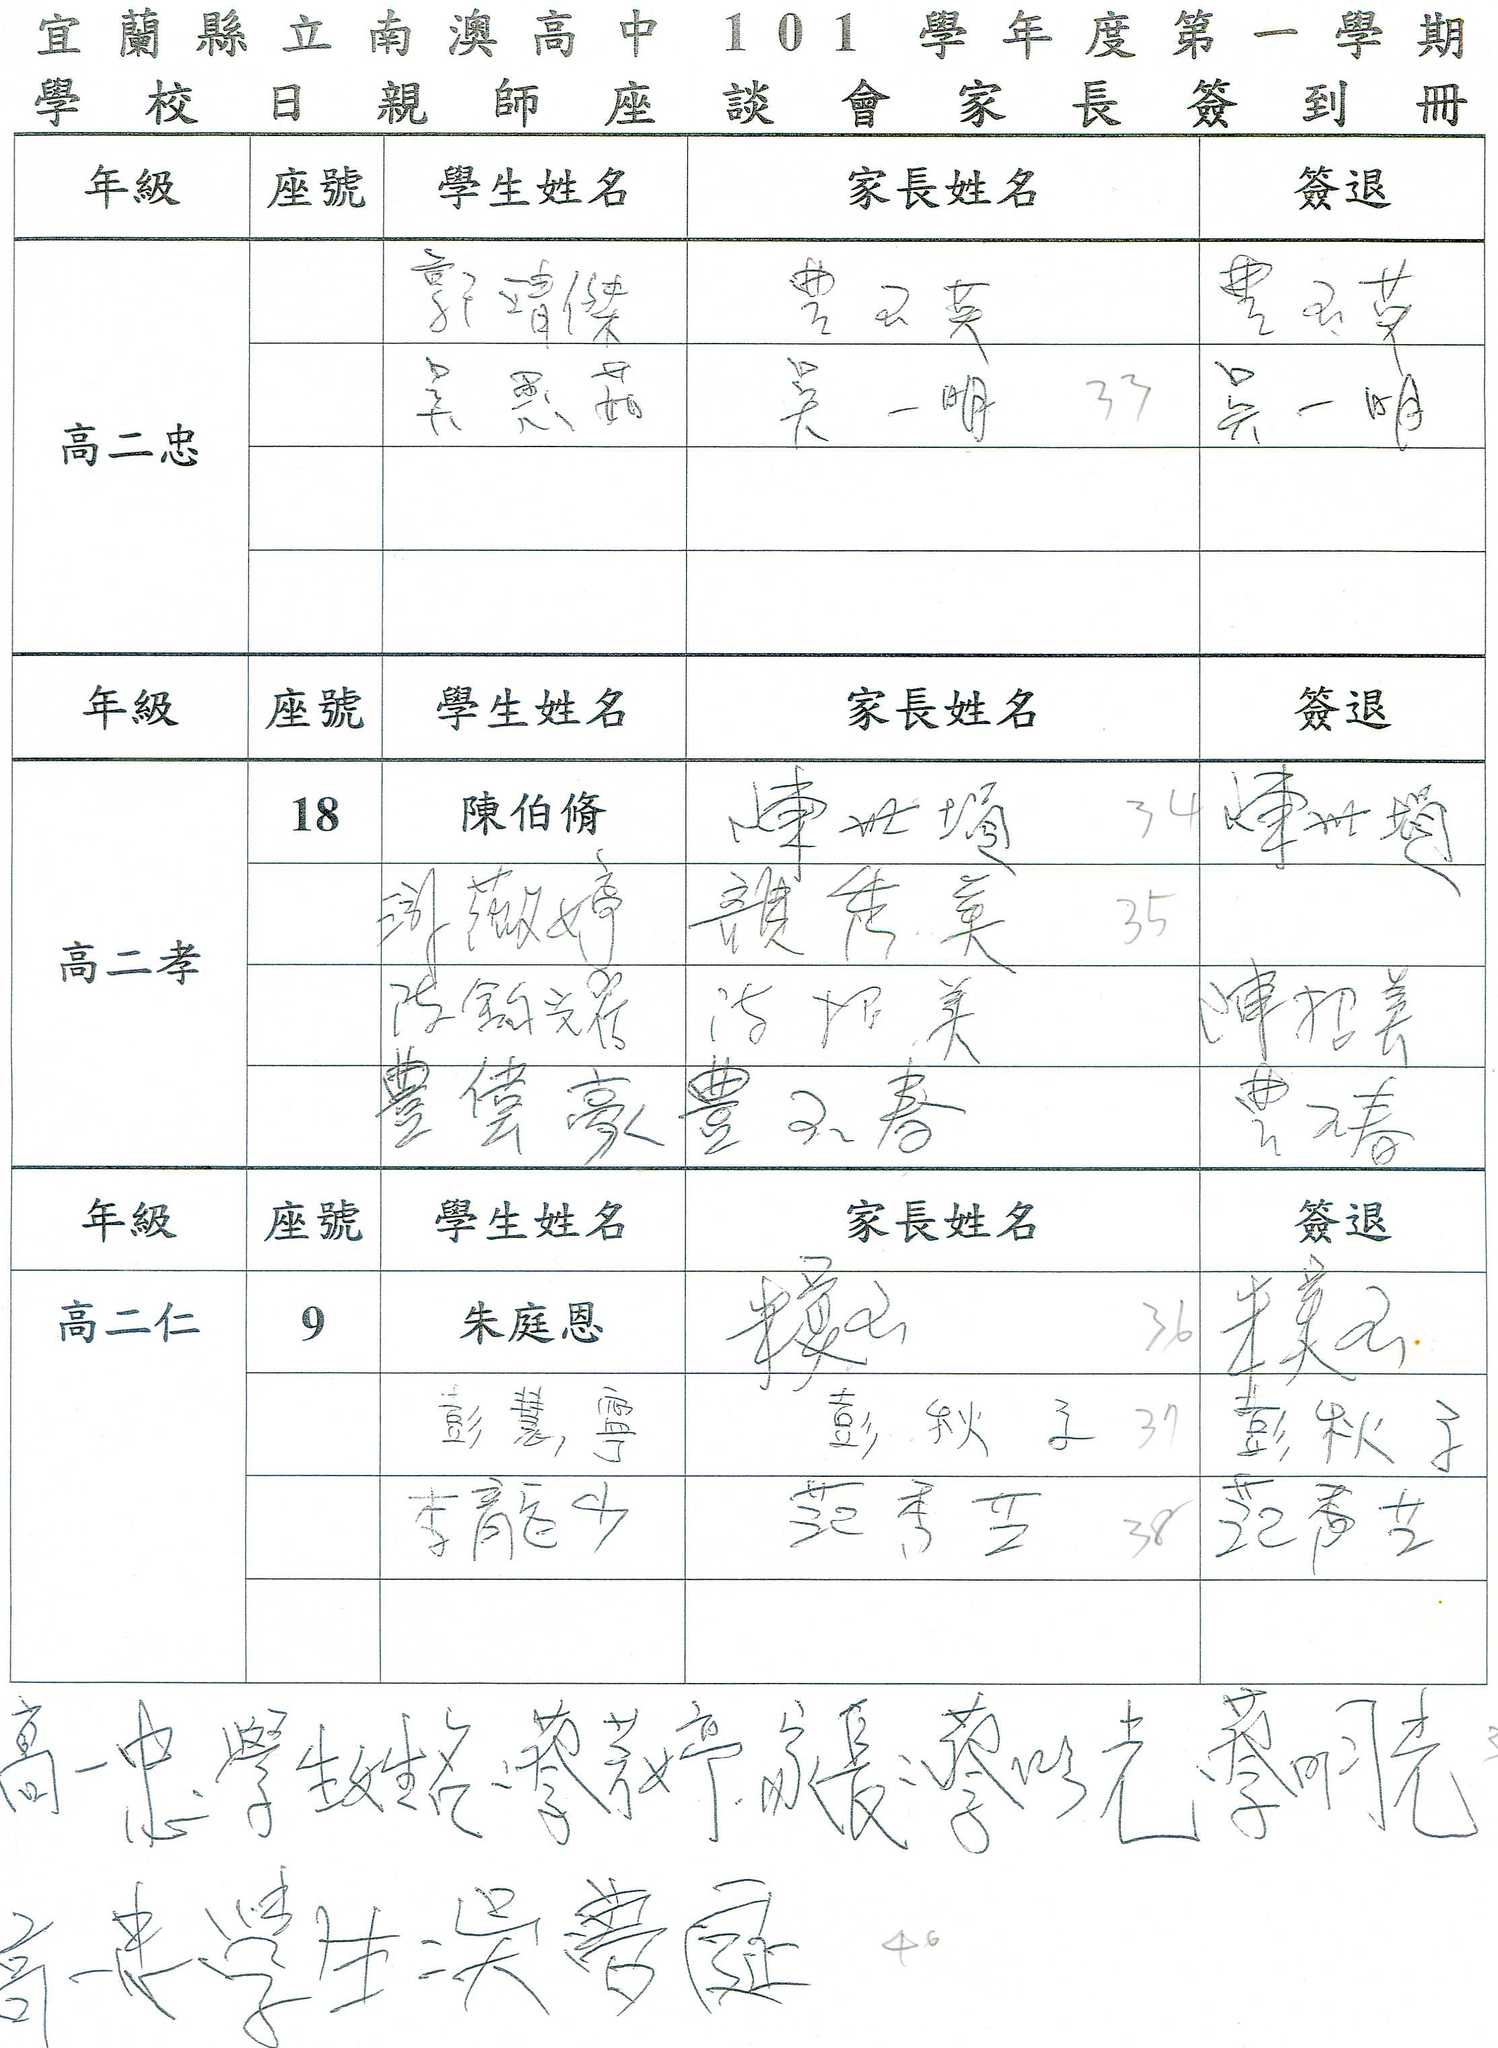 宜蘭縣立南澳高中 101 學年度第一學期
學校日親師座談會家長簽到冊
年級 座號 學生姓名 家長姓名 簽退
郭靖傑 豊玉英 豊玉英
高二忠
吳思茹 吳一明 33 吳一明
年級 座號 學生姓名 家長姓名 簽退
18 陳伯脩 陳世 34 陳世
高二孝
薇婷 秀英 35
陳 陳招美 陳招美
豊偉豪 豊玉春 豊玉春
年級 座號 學生姓名 家長姓名 簽退
高二仁 9 朱庭恩 朱美玉 36 朱美玉
彭慧寧 彭秋子 37 彭秋子
李龍少 范秀芷 38 范秀芷
高一忠 學生姓名:蔡芳婷 家長:蔡明光 蔡明光
高一忠 學生:吳庭 40